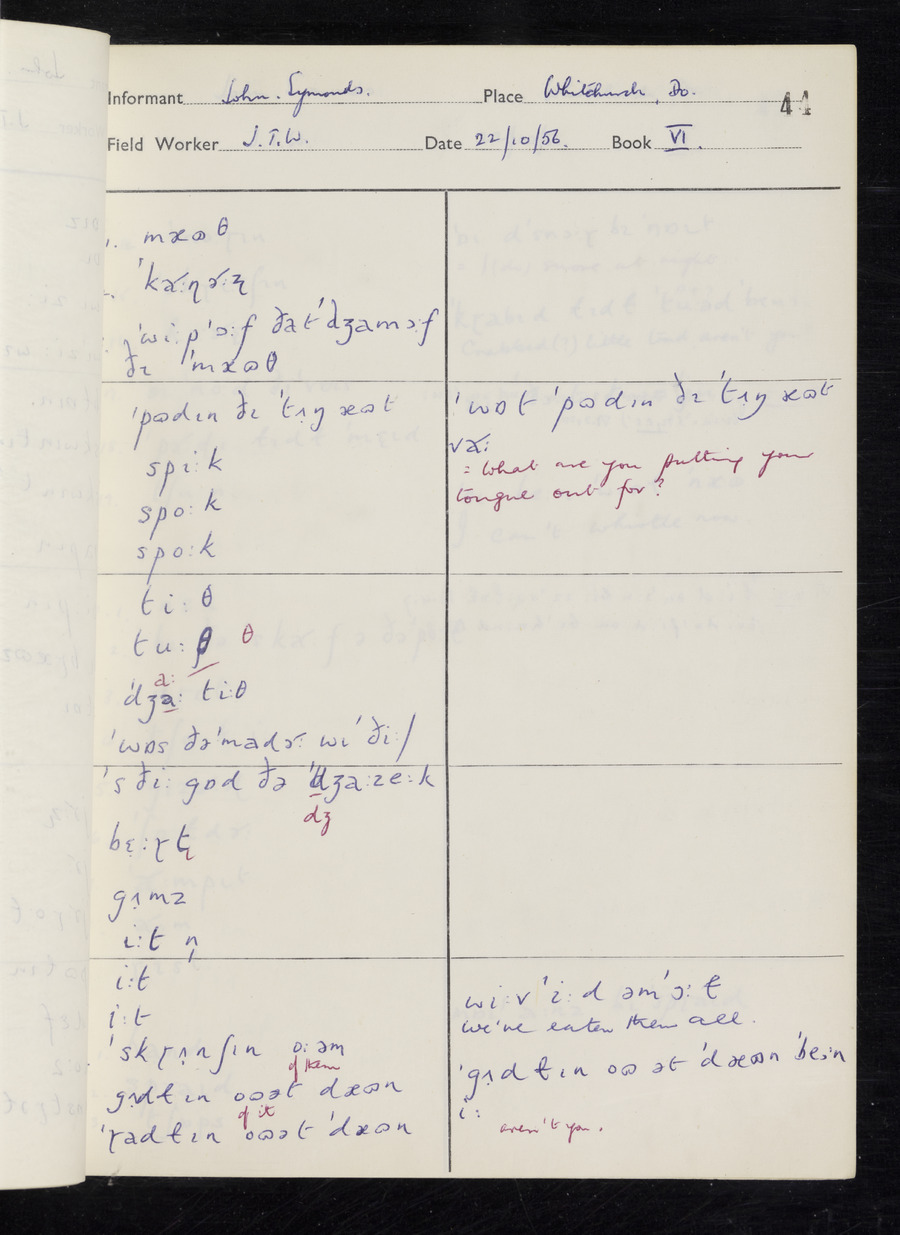 Informant John. Symonds. Place Whitchurch, Do. 44
Field Worker J.T.W. Date 22/10/56. Book VI.
mæɷθ
ˈwiːpˈɔːf ðat ˈdʒamɔːf
ðɪ ˈmæɷθ
ˈpɷdɪn ðɪ ˈtɪŋ æɷt
spiːk
spoːk
spoːk
tiːθ
tuːθ θ
aː
ˈdʒaː tiːθ
ˈwɒs ðəˈmadɚː wɪˈðiː/
ˈs ðiː gɒd ðə ˈdʒaːzeːk
dʒ
gɪmz
iːt n̩
iːt
iːt
oːəm
of them
gɪdɫɪn oɷət dæɷn
of it
ˈɽadɫɪn oɷət ˈdæɷn
ˈwɒt ˈpɷdɪn ðɪ ˈtɪŋ æɷt
vɚː
= What are you putting your
tongue out for?
wiːvˈiːd əmˈɔːɫ
we've eaten them all.
ˈgɪdɫɪn oɷ ət ˈdæɷn ˈbeːn
iː
aren't you.